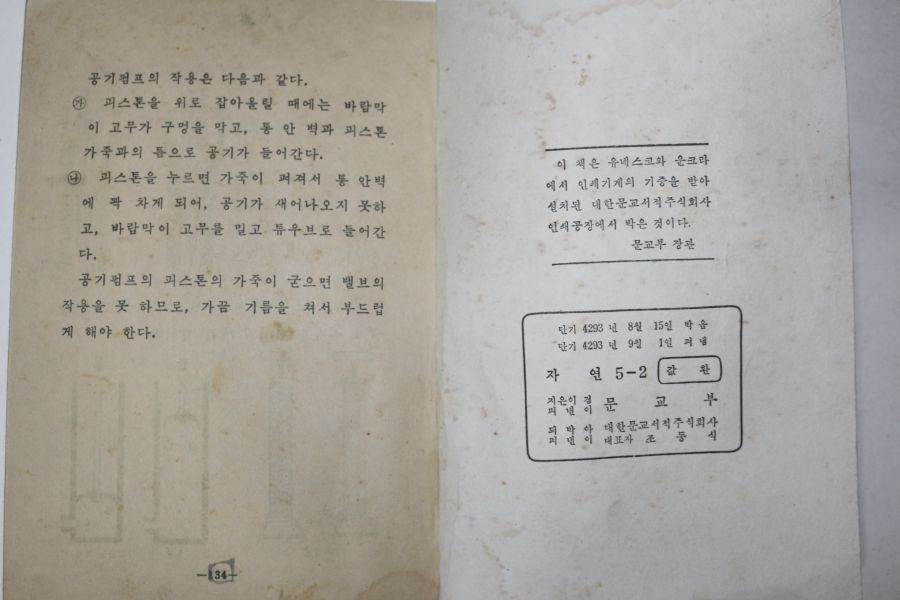 공기펌프의 작용은 다음과 같다.
㉮ 피스톤을 위로 잡아올릴 때에는 바람막
이 고무가 구멍을 막고, 통 안 벽과 피스톤
가죽과의 틈으로 공기가 들어간다.
㉯ 피스톤을 누르면 가죽이 펴져서 통 안벽
에 꽉 차게 되어, 공기가 새어나오지 못하
고, 바람막이 고무를 밀고 튜우브로 들어간
다.
공기펌프의 피스톤의 가죽이 굳으면 밸브의
작용을 못 하므로, 가끔 기름을 쳐서 부드럽
게 해야 한다.
—134—
이 책은 유네스코와 운크라
에서 인쇄기계의 기증을 받아
설치된 대한문교서적주식회사
인쇄공장에서 박은 것이다.
문교부 장관
단기 4293 년 8월 15일 박음
단기 4293 년 9월 1일 펴냄
자 연 5-2 값 환
지은이 겸
펴낸이 문 교 부
되박아
펴낸이 대한문교서적주식회사
대표자 조 동 식